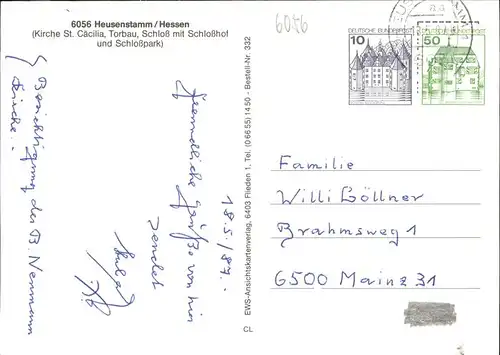 6056 Heusenstamm/Hessen
(Kirche St. Cäcilia, Torbau, Schloß mit Schloßhof
und Schloßpark)
6056
DEUTSCHE BUNDESPOST
10
50
18.5./87.-
freundliche Grüße von hier
sendet
( Besichtigung der B. Neumann
Kirche.-
EWS-Ansichtskartenverlag, 6403 Flieden 1, Tel. (0 66 55) 14 50 - Bestell-Nr. 332
CL
Familie
Willi Göllner
Brahmsweg 1
6500 Mainz 31